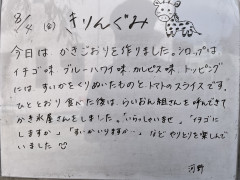 8/4(金) きりんぐみ
今日は かきごおりを作りました。シロップは
イチゴ味 ブルーハワイ味 カルピス味 トッピング
には すいかをくりぬいたものと トマトのスライスです。
ひととおり食べた後は、らいおん組さんを呼んできて
かき氷屋さんをしました。"いらっしゃいませ" "イチゴに
しますか" "すいかいりますか…" などやりとりを楽しんで
いました
河野